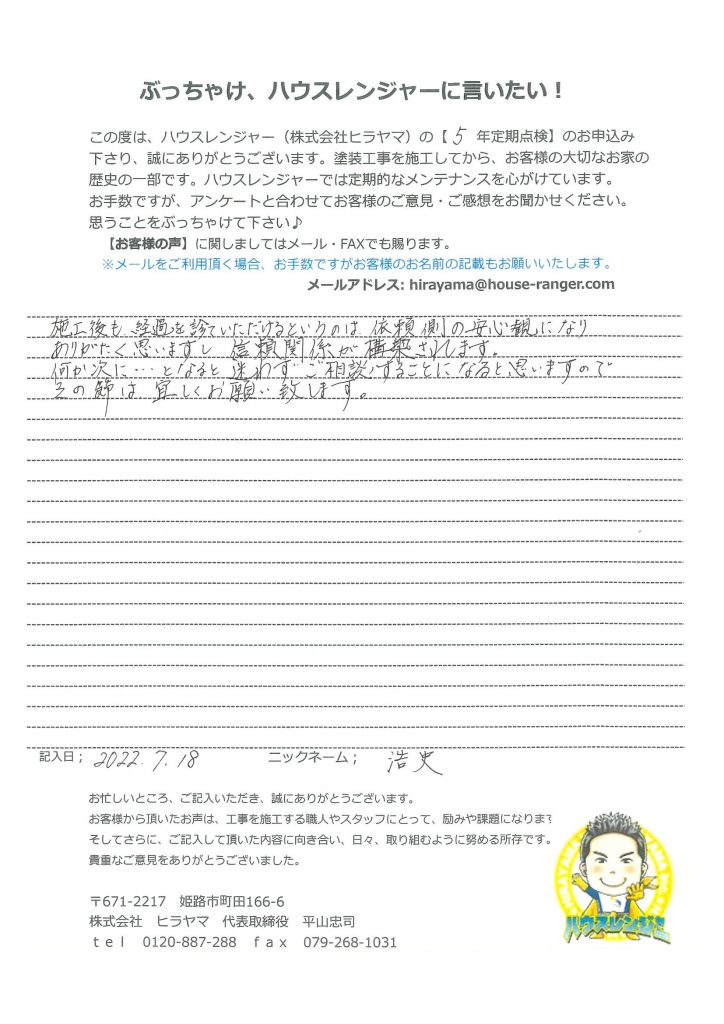 ぶっちゃけ、ハウスレンジャーに言いたい！
この度は、ハウスレンジャー（株式会社ヒラヤマ）の【 5 年定期点検】のお申込み
下さり、誠にありがとうございます。塗装工事を施工してから、お客様の大切なお家の
歴史の一部です。ハウスレンジャーでは定期的なメンテナンスを心がけています。
お手数ですが、アンケートと合わせてお客様のご意見・ご感想をお聞かせください。
思うことをぶっちゃけて下さい♪
【お客様の声】に関しましてはメール・FAXでも賜ります。
※メールをご利用頂く場合、お手数ですがお客様のお名前の記載もお願いいたします。
メールアドレス: hirayama@house-ranger.com
施工後も 経過を診ていただけるというのは 依頼側の安心観になり
ありがたく思いますし 信頼関係が構築されます。
何か次に…となると 迷わず ご相談することになると思いますので
その節は 宜しくお願い致します。
記入日； 2022.7.18 ニックネーム； 浩史
お忙しいところ、ご記入いただき、誠にありがとうございます。
お客様から頂いたお声は、工事を施工する職人やスタッフにとって、励みや課題になります
そしてさらに、ご記入して頂いた内容に向き合い、日々、取り組むように努める所存です。
貴重なご意見をありがとうございました。
ハウスレンジャー
〒671-2217 姫路市町田166-6
株式会社 ヒラヤマ 代表取締役 平山忠司
ｔｅｌ 0120-887-288 ｆａｘ 079-268-1031